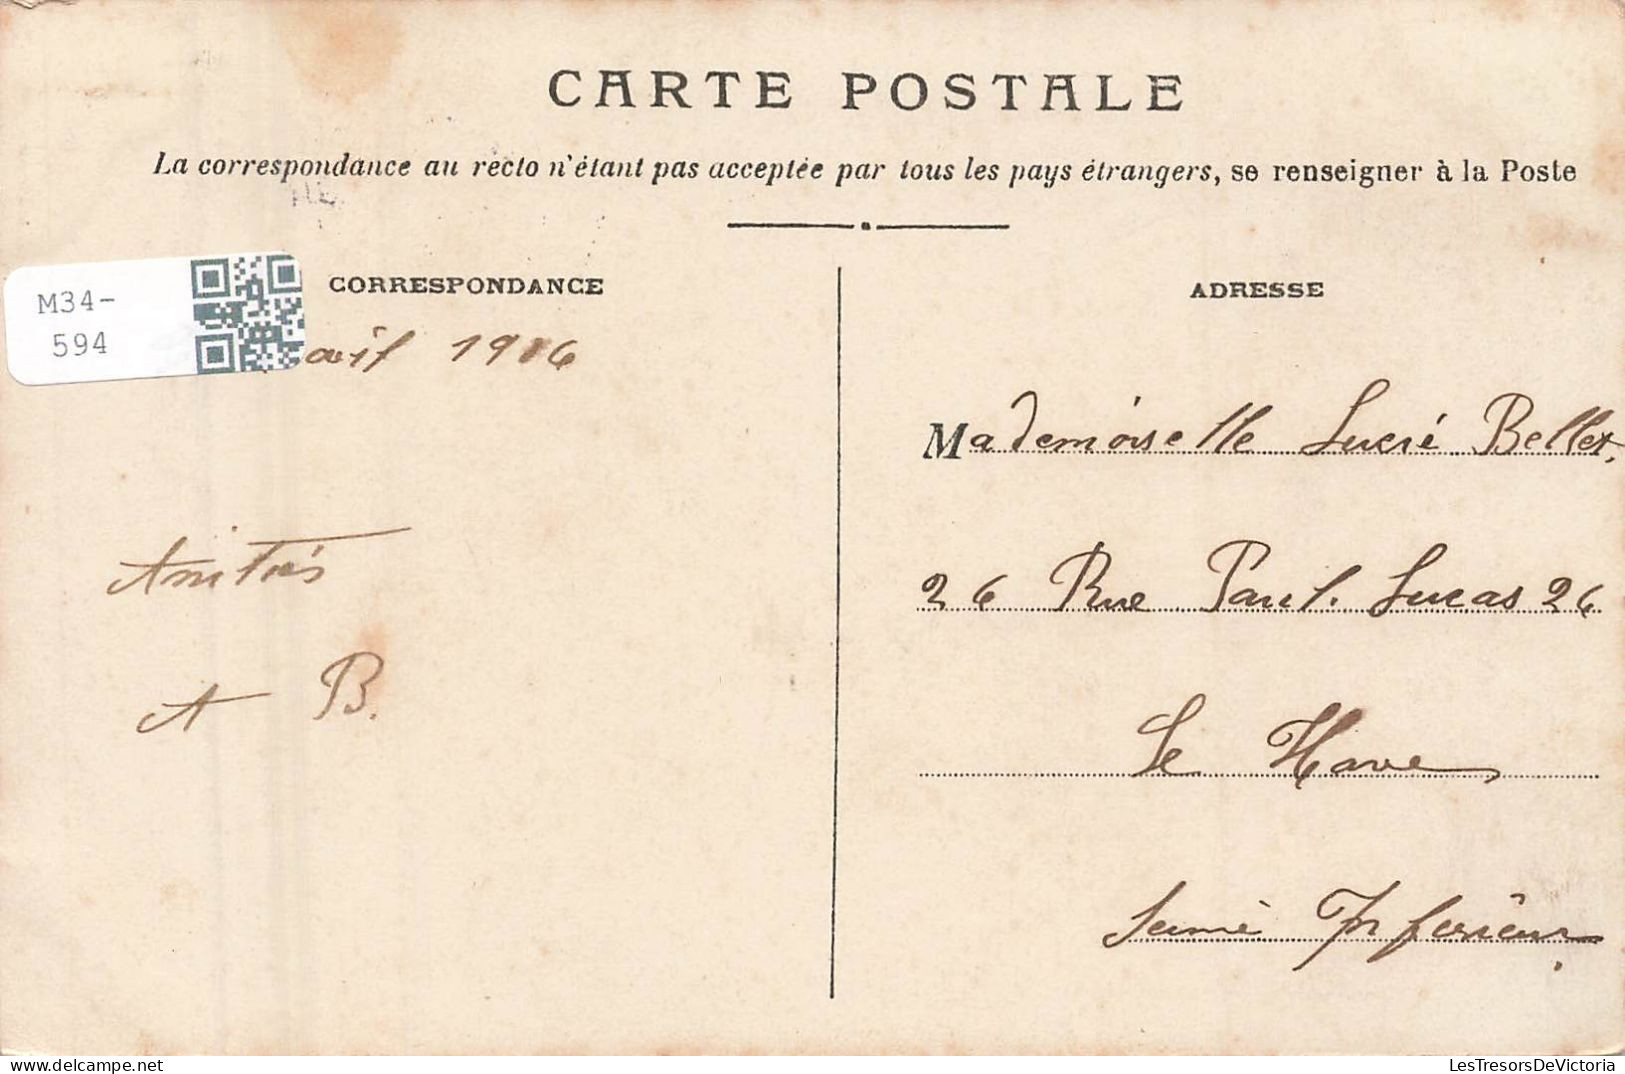 CARTE POSTALE
La correspondance au recto n'étant pas acceptée par tous les pays étrangers, se renseigner à la Poste
M34-
594
CORRESPONDANCE
ADRESSE
1906
Mademoiselle Lucie Bellet
26 Rue Paul. Lucas 26
Le Havre
Seine Inférieure
Amitiés
A B.
LesTresorsDeVictoria